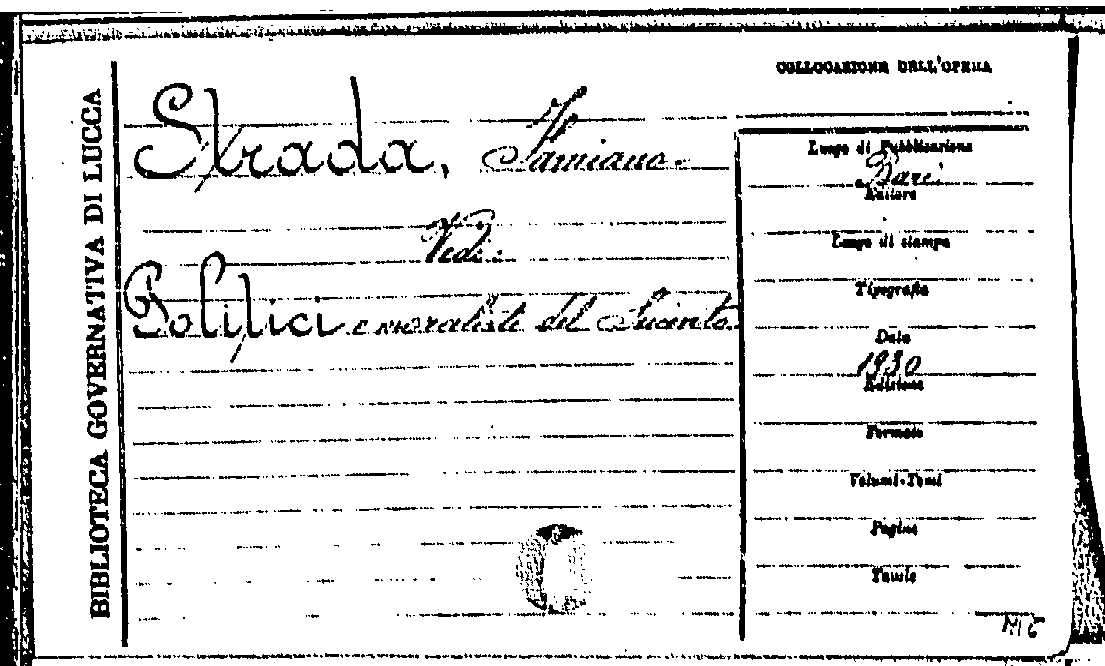 BIBLIOTECA GOVERNATIVA DI LUCCA
Strada, Famiano.
Vedi:
Politici e moralisti del Seicento.
COLLOCAZIONE DELL'OPERA
Luogo di Pubblicazione
Bari
Editore
Luogo di stampa
Tipografia
Data
1930
Edizione
Formato
Volumi-Tomi
Pagine
Tavole